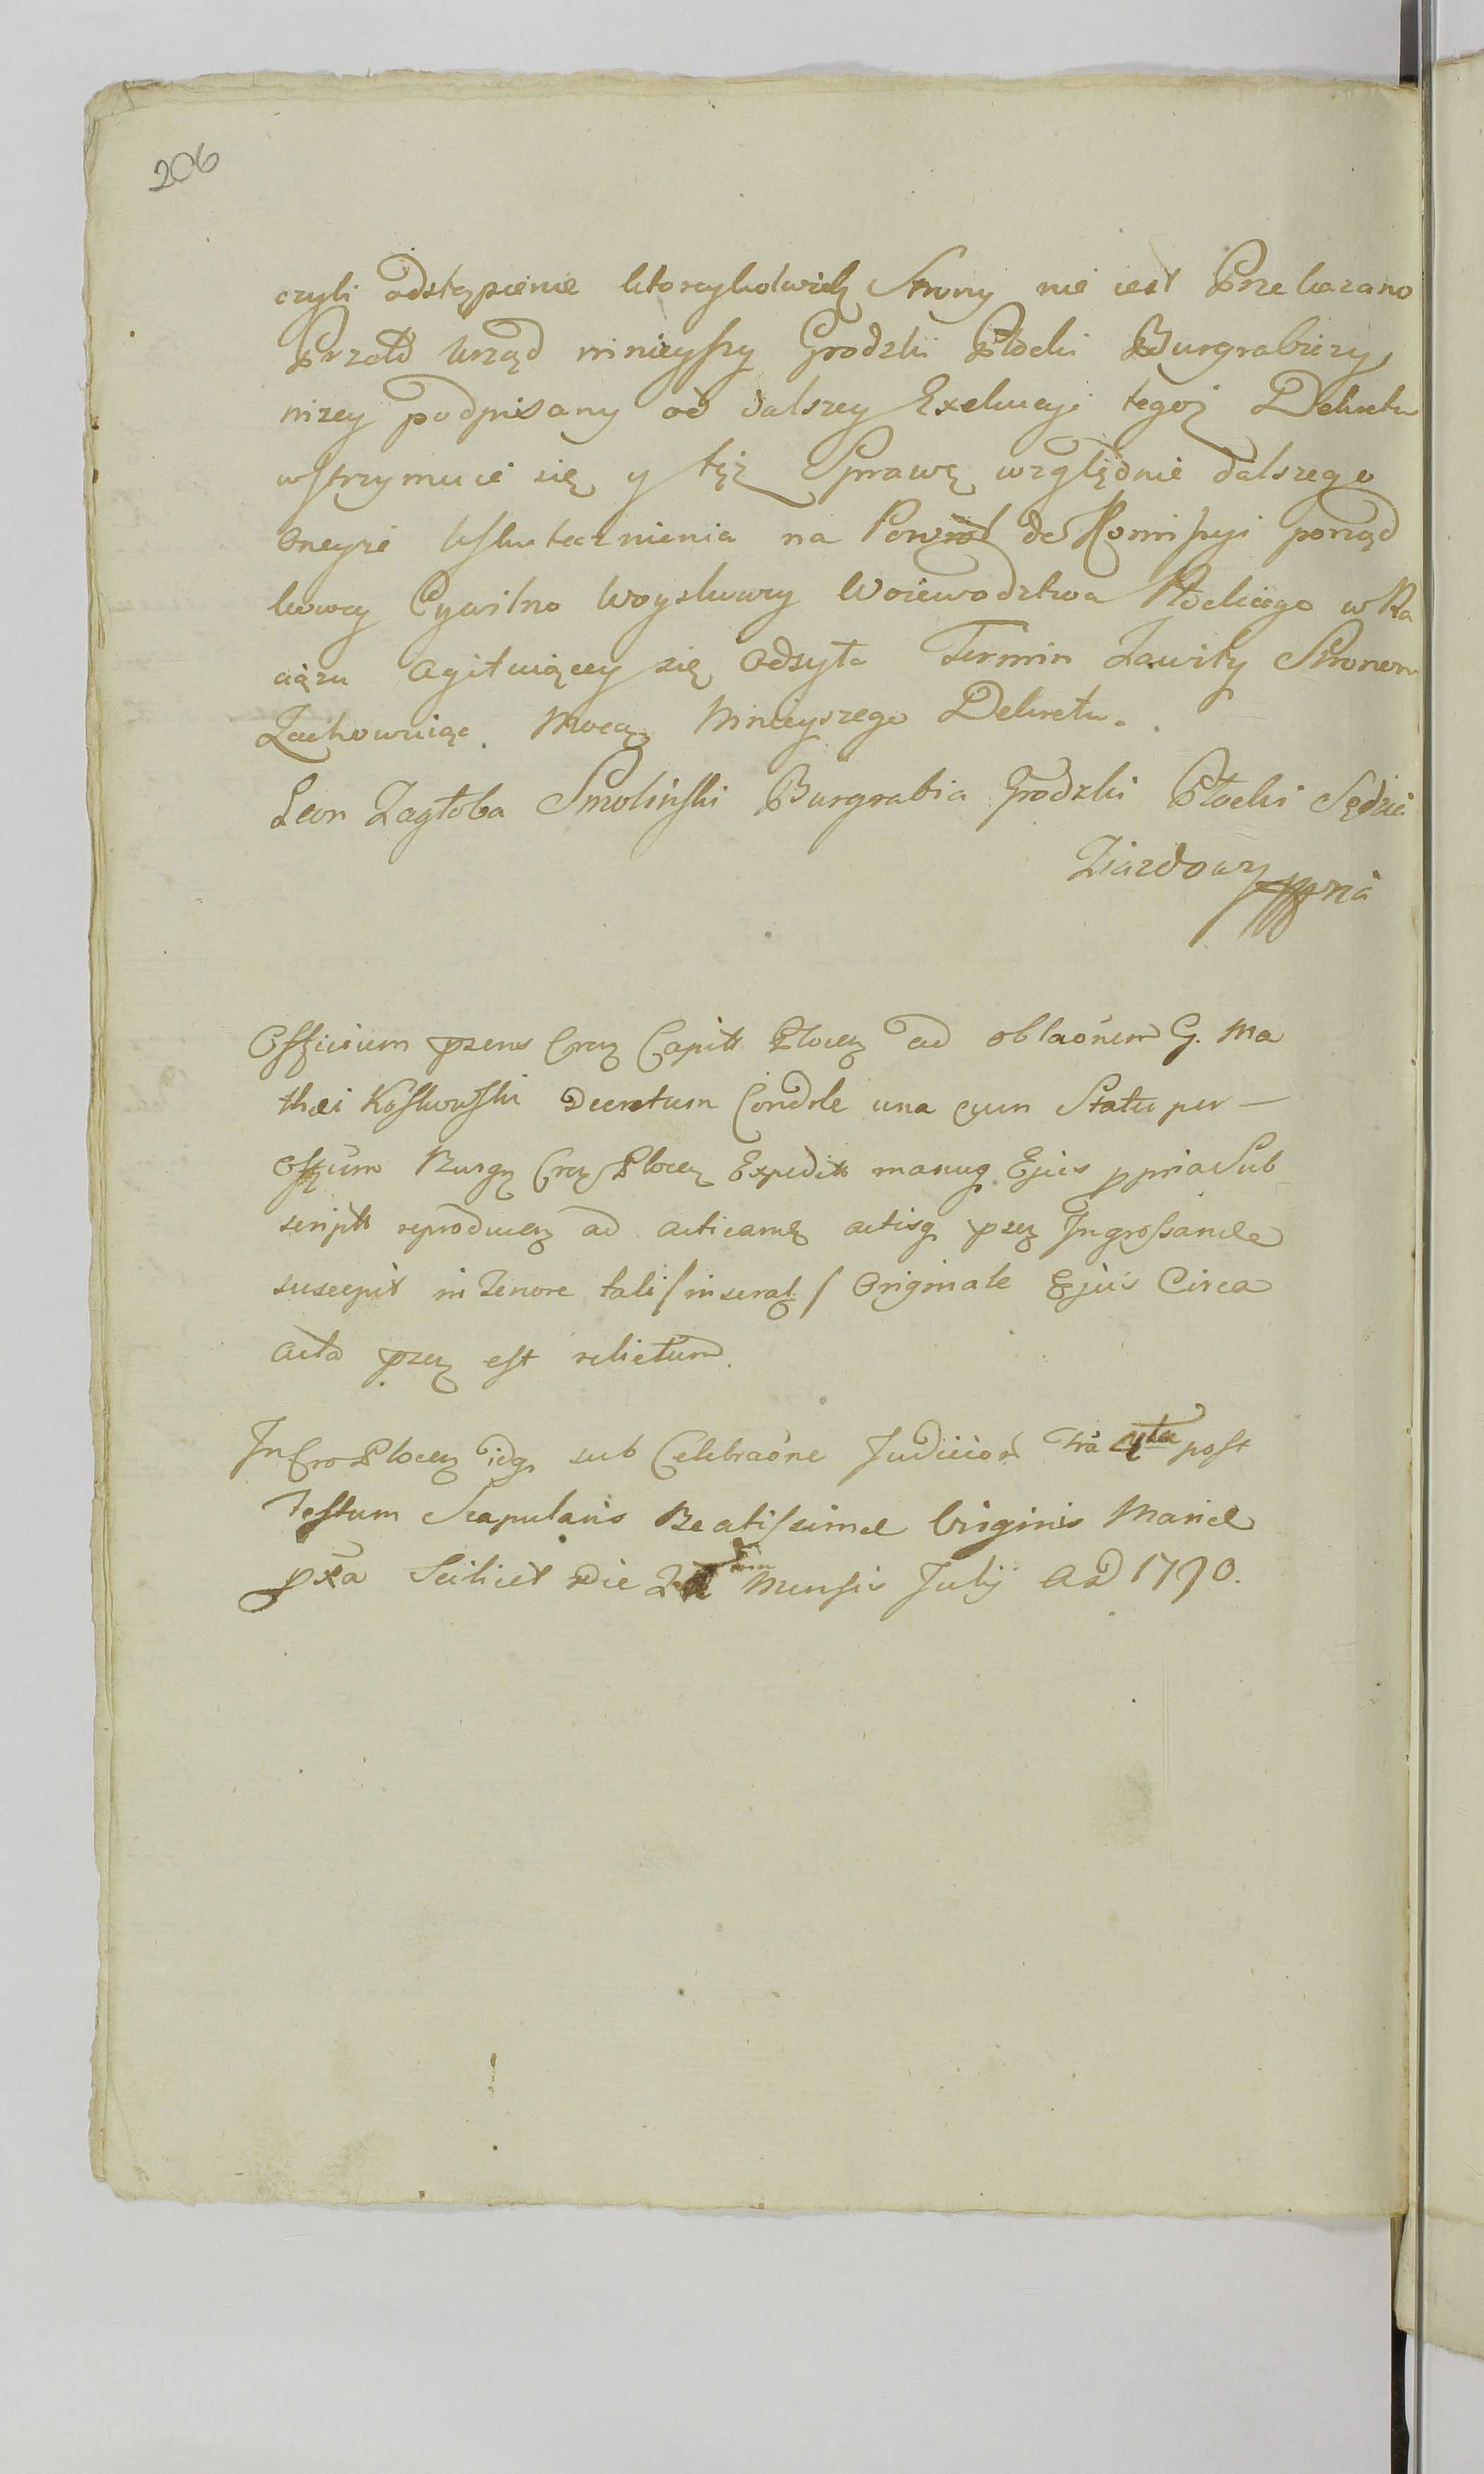 206
czyli odstąpienie ktoreykolwiek Strony nie iest Przekazano
Przeto Urząd ninieyszy Grodzki Płocki Burgrabiczy
nizey podpisany od dalszey Exekucyi tegoż Dekretu
wstrzymuie się y tęż Sprawę względnie dalszego
oneyże Uskutecznienia na Powrót do Komissyi porząd
kowey Cywilno Woyskowey Woiewodztwa Płockiego w Ra
ciążu agituiącey się Odsyła Termin Zawity Stronom
Zachowuiąc. Mocą Ninieyszego Dekretu.
Leon Zagłoba Smoliński Burgrabia Grodzki Płocki Sędzia
Ziazdowy mpria
Officium pzens Cren Capitt Plocen ad oblaônem G. Ma
thæi Koskowski Decretum Condrle una cum Statu per
Offium Burg Cren Plocen Expeditt manuq Ejus ppria Sub
scriptt reproducen ad acticamę actisq pzen Ingrossande
suscepit in Tenore tali / inserat / Originale Ejus Circa
acta pzen est relictum.
In Cro Plocen idq sub Celebraône Judicior Fria 4ta post
Festum Scapularis Beatissimæ Virginis Mariæ
pxa Scilicet die Mensis Julij AD 1790.